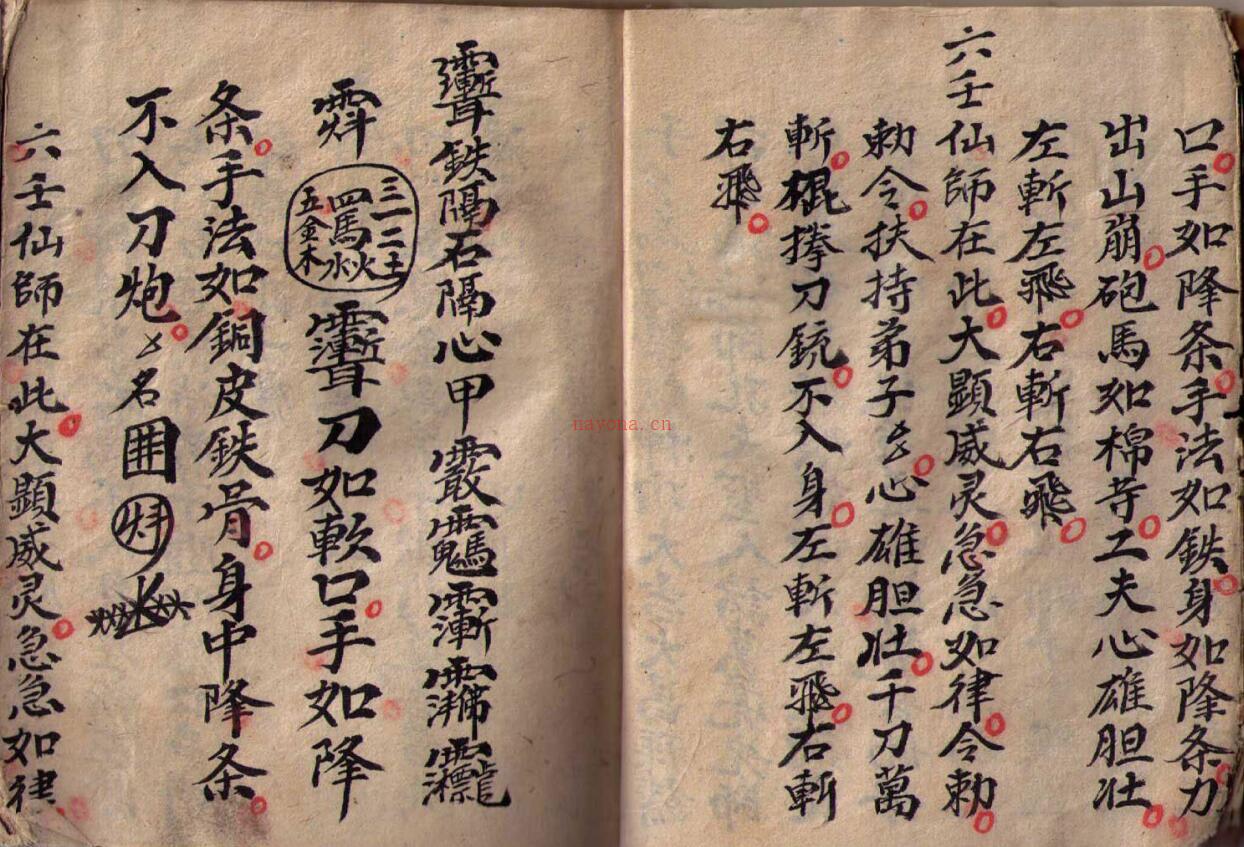 口手如降条手法如鉄身如隆条力
出山崩砲馬如棉䒭工夫心雄胆壮
左斬左飛右斬右飛
六壬仙師在此大顕威灵急急如律令勅
勅令扶持弟子心雄胆壮千刀萬
斬棍拳刀銃不入身左斬左飛右斬
右飛
鉄隔石隔心甲
三一二土
四馬火水
五金木
刀如軟口手如降
条手法如銅皮鉄骨身中降条
不入刀炮名
六壬仙師在此大顕威灵急急如律
nayona.cn